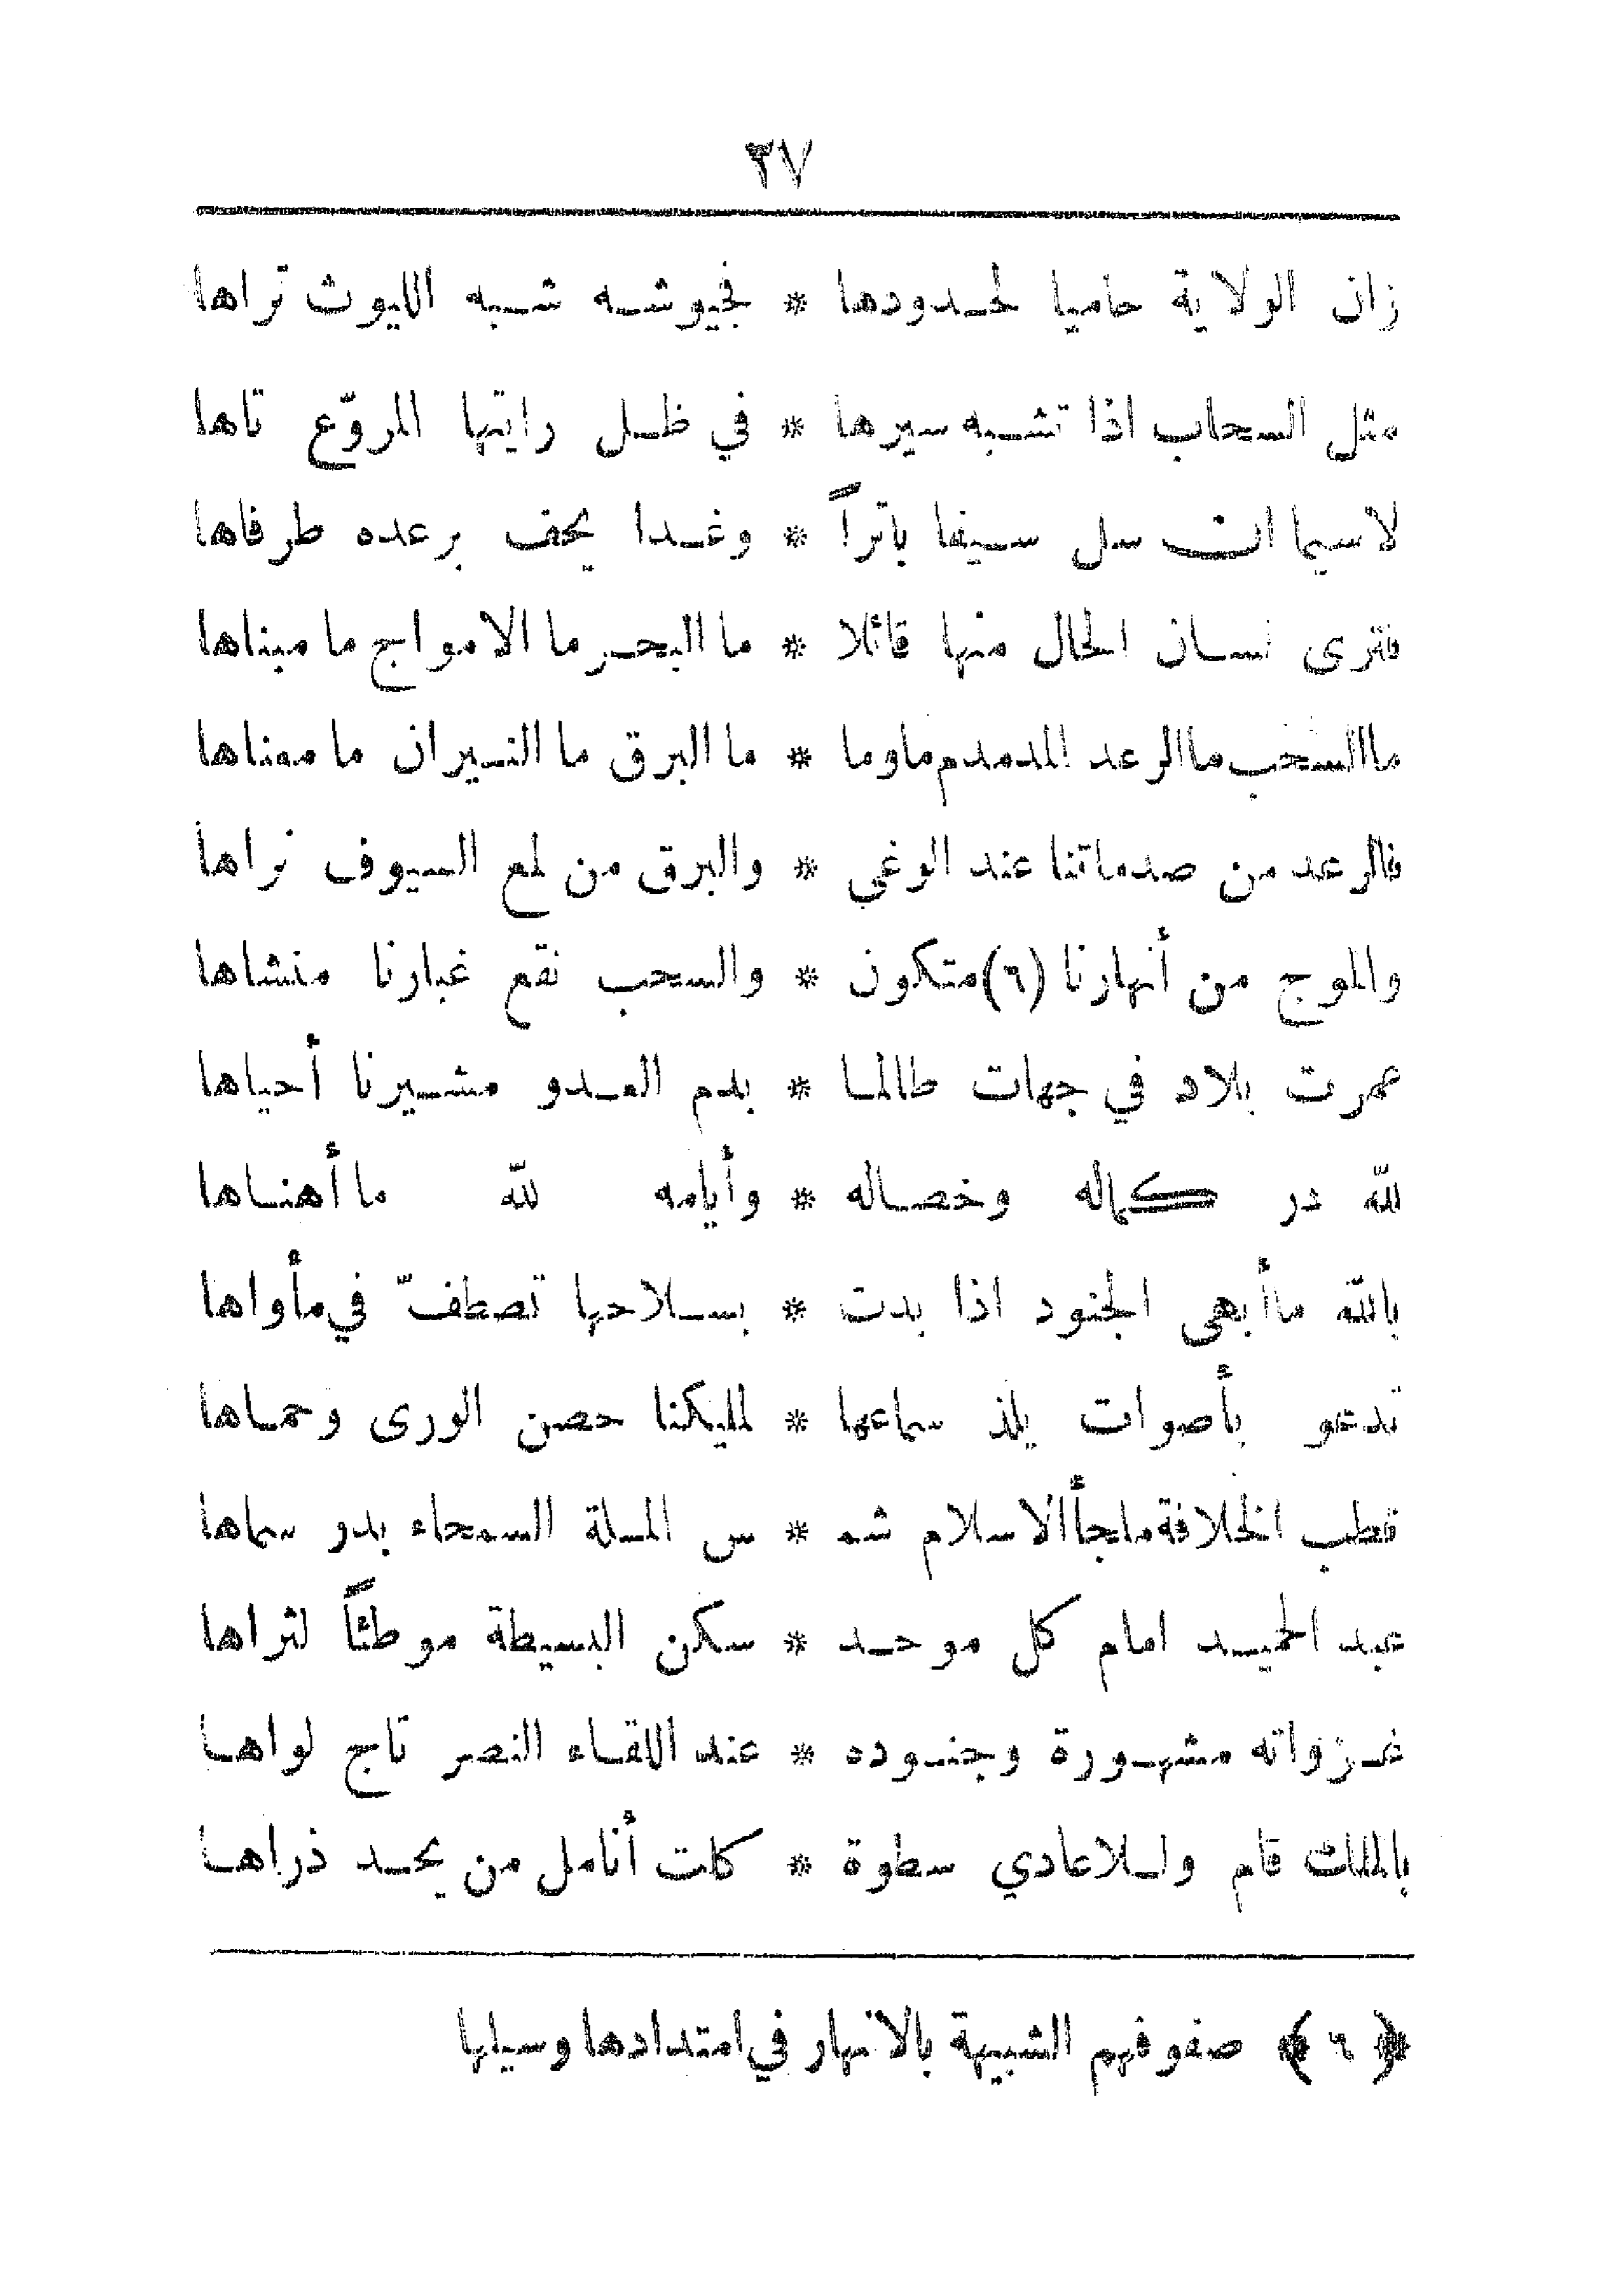 ٣٧
زان الولاية حاميا لحدودها * فجيوشه شبه الليوث تراها
مثل السحاب اذا تشبه سيرها * في ظل رايتها المروّع تاها
لاسيما ان سل سيفا باتراً * وغدا يحف برعده طرفاها
فترى لسان الحال منها قائلا * ما البحر ما الامواج ما مبناها
ما السحب ما الرعد المدمدم ماوما * ما البرق ما النيران ما معناها
فالرعد من صدماتنا عند الوغى * والبرق من لمع السيوف نراها
والموج من أنهارنا (٦) متكون * والسحب نقع غبارنا منشاها
عمرت بلاد في جهات طالما * بدم العدو مشيرنا أحياها
للّه در كماله وخصاله * وأيامه للّه ما أهناها
باللّه ما أبهى الجنود اذا بدت * بسلاحها تصطفّ في مأواها
تدعو بأصوات يلذ سماعها * لمليكنا حصن الورى وحماها
قطب الخلافة ملجأ الاسلام شمـ * ـس الملة السمحاء بدر سماها
عبد الحميد امام كل موحد * سكن البسيطة موطئاً لثراها
غزواته مشهورة وجنوده * عند اللقاء النصر تاج لواها
بالملك قام وللاعادي سطوة * كلت أنامل من يحد ذراها
﴿ ٦ ﴾ صفوفهم الشبيهة بالانهار في امتدادها وسيلها